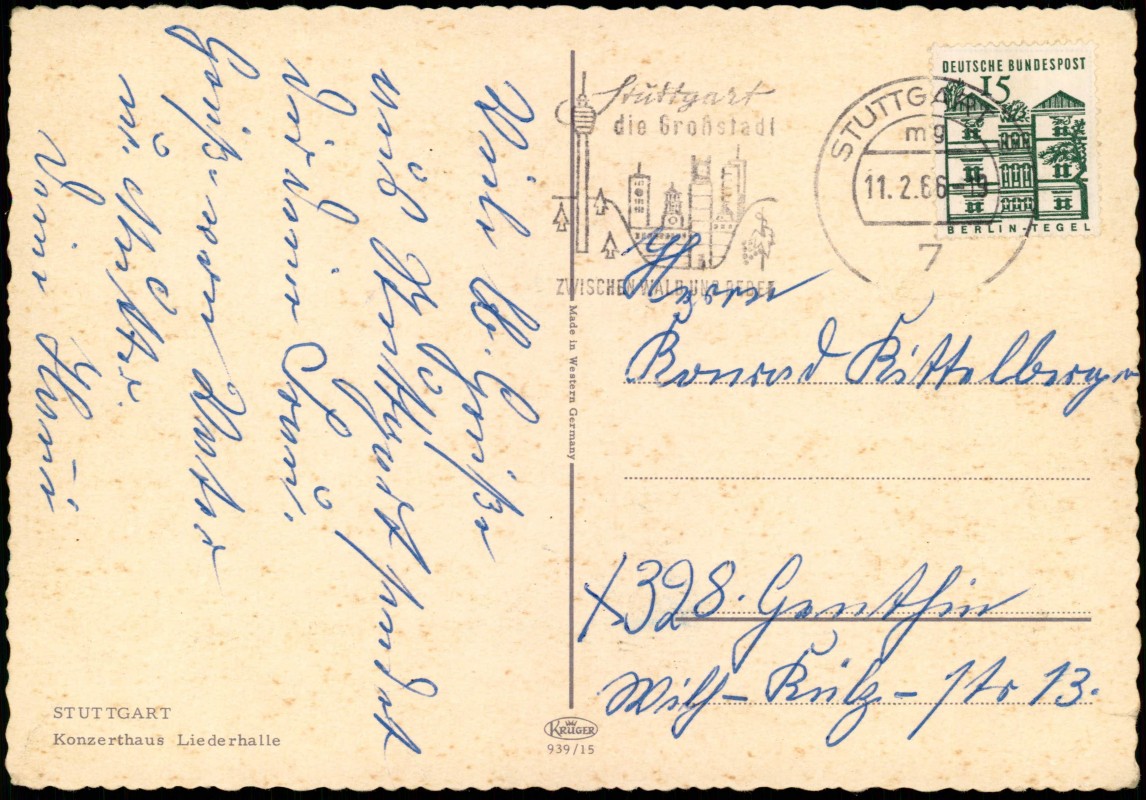 Viele lb. Grüße
aus Stuttgart sendet
Dir Deine Tante.
Grüße deine Mutter
Deine
STUTTGART
Konzerthaus Liederhalle
Made in Western Germany
KRÜGER
939/15
Stuttgart
die Großstadt
ZWISCHEN WALD UND REBEN
STUTTGART
mg
11.2.66-19
7
DEUTSCHE BUNDESPOST
15
BERLIN-TEGEL
Herrn
Konrad Kittelberger
X 328. Genthin
Wilh-Külz-Str 13.